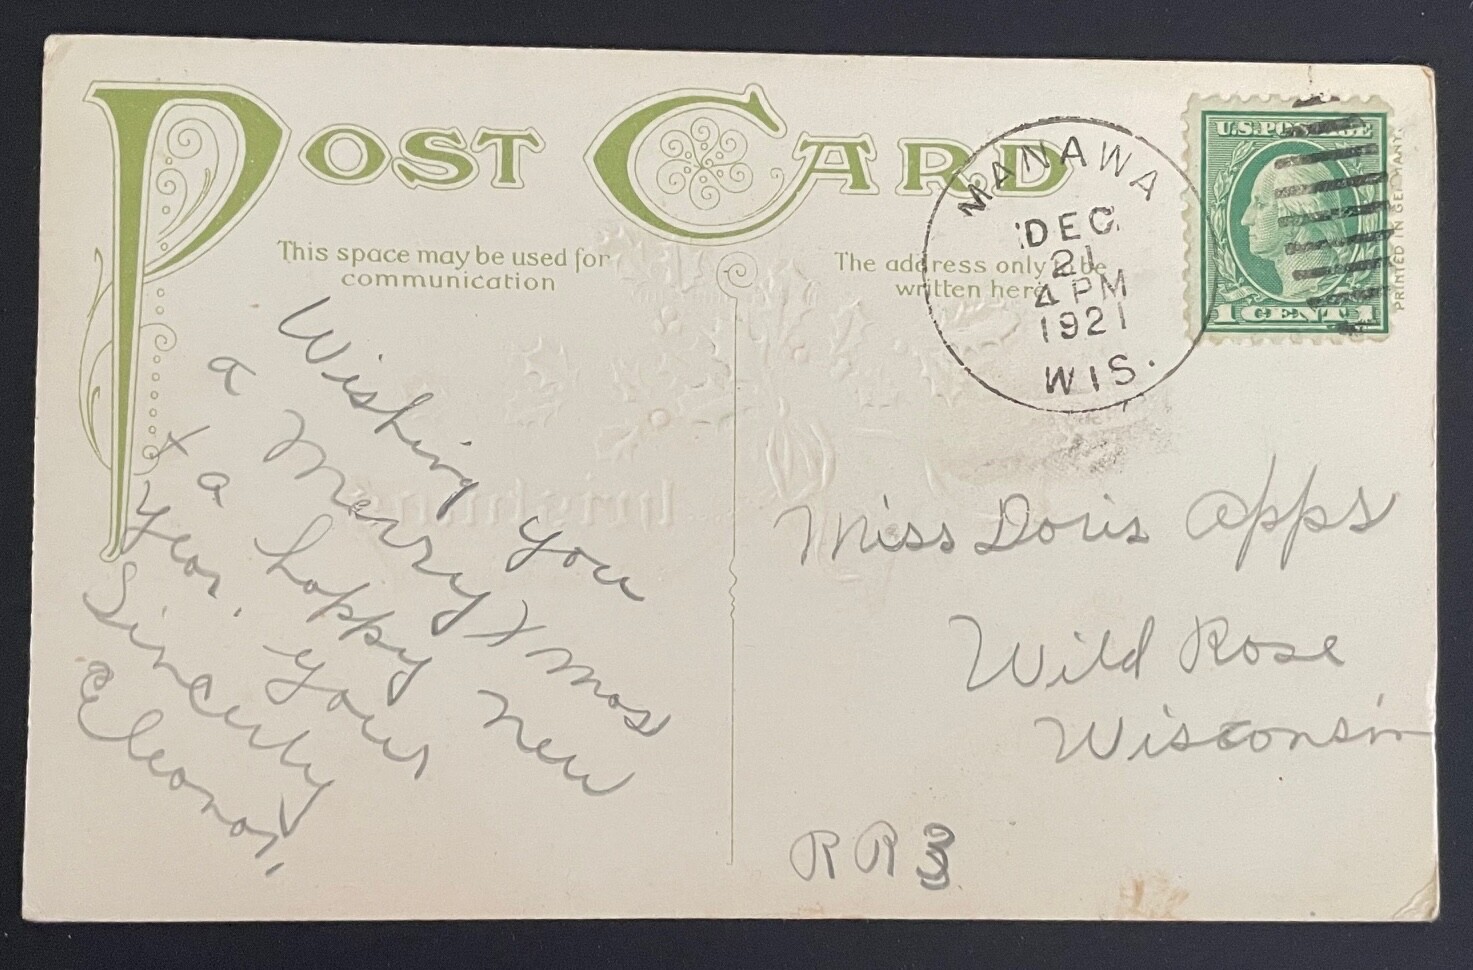 POST CARD
This space may be used for
communication
The address only to be
written here
MANAWA
DEC
21
4 PM
1921
WIS.
U.S. POSTAGE
1 CENT 1
PRINTED IN GERMANY
Wishing you
a Merry Xmas
+ a happy New
Year. Your
Sincerly
Eleonor,
Miss Doris Apps
Wild Rose
Wisconsin
RR3